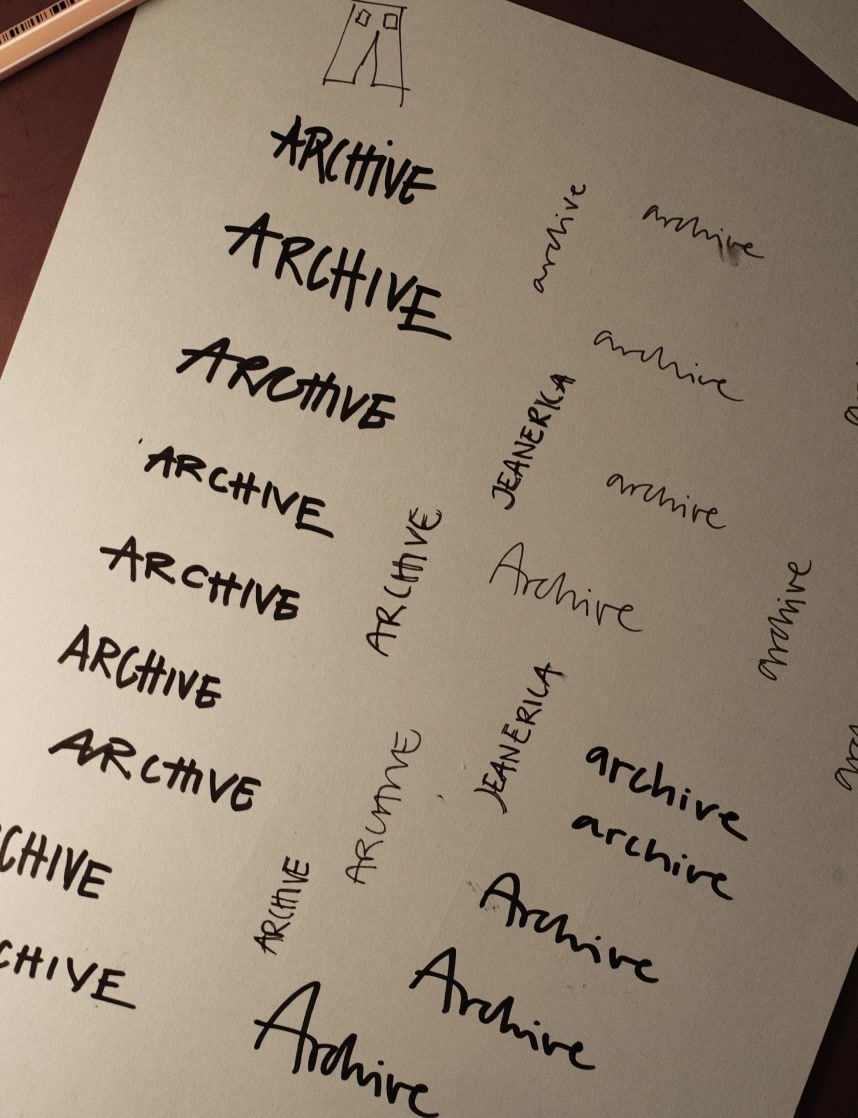 ARCHiVE
ARCHIVE
ARCHIVE
ARCHIVE
ARCHIVE
ARCHIVE
ARCHIVE
CHIVE
CHIVE
ARCHIVE
ARCHIVE
ARCHIVE
Archive
archive
archive
archive
JEANERICA
archive
Archive
archive
JEANERICA
archive
archive
Archive
Archive